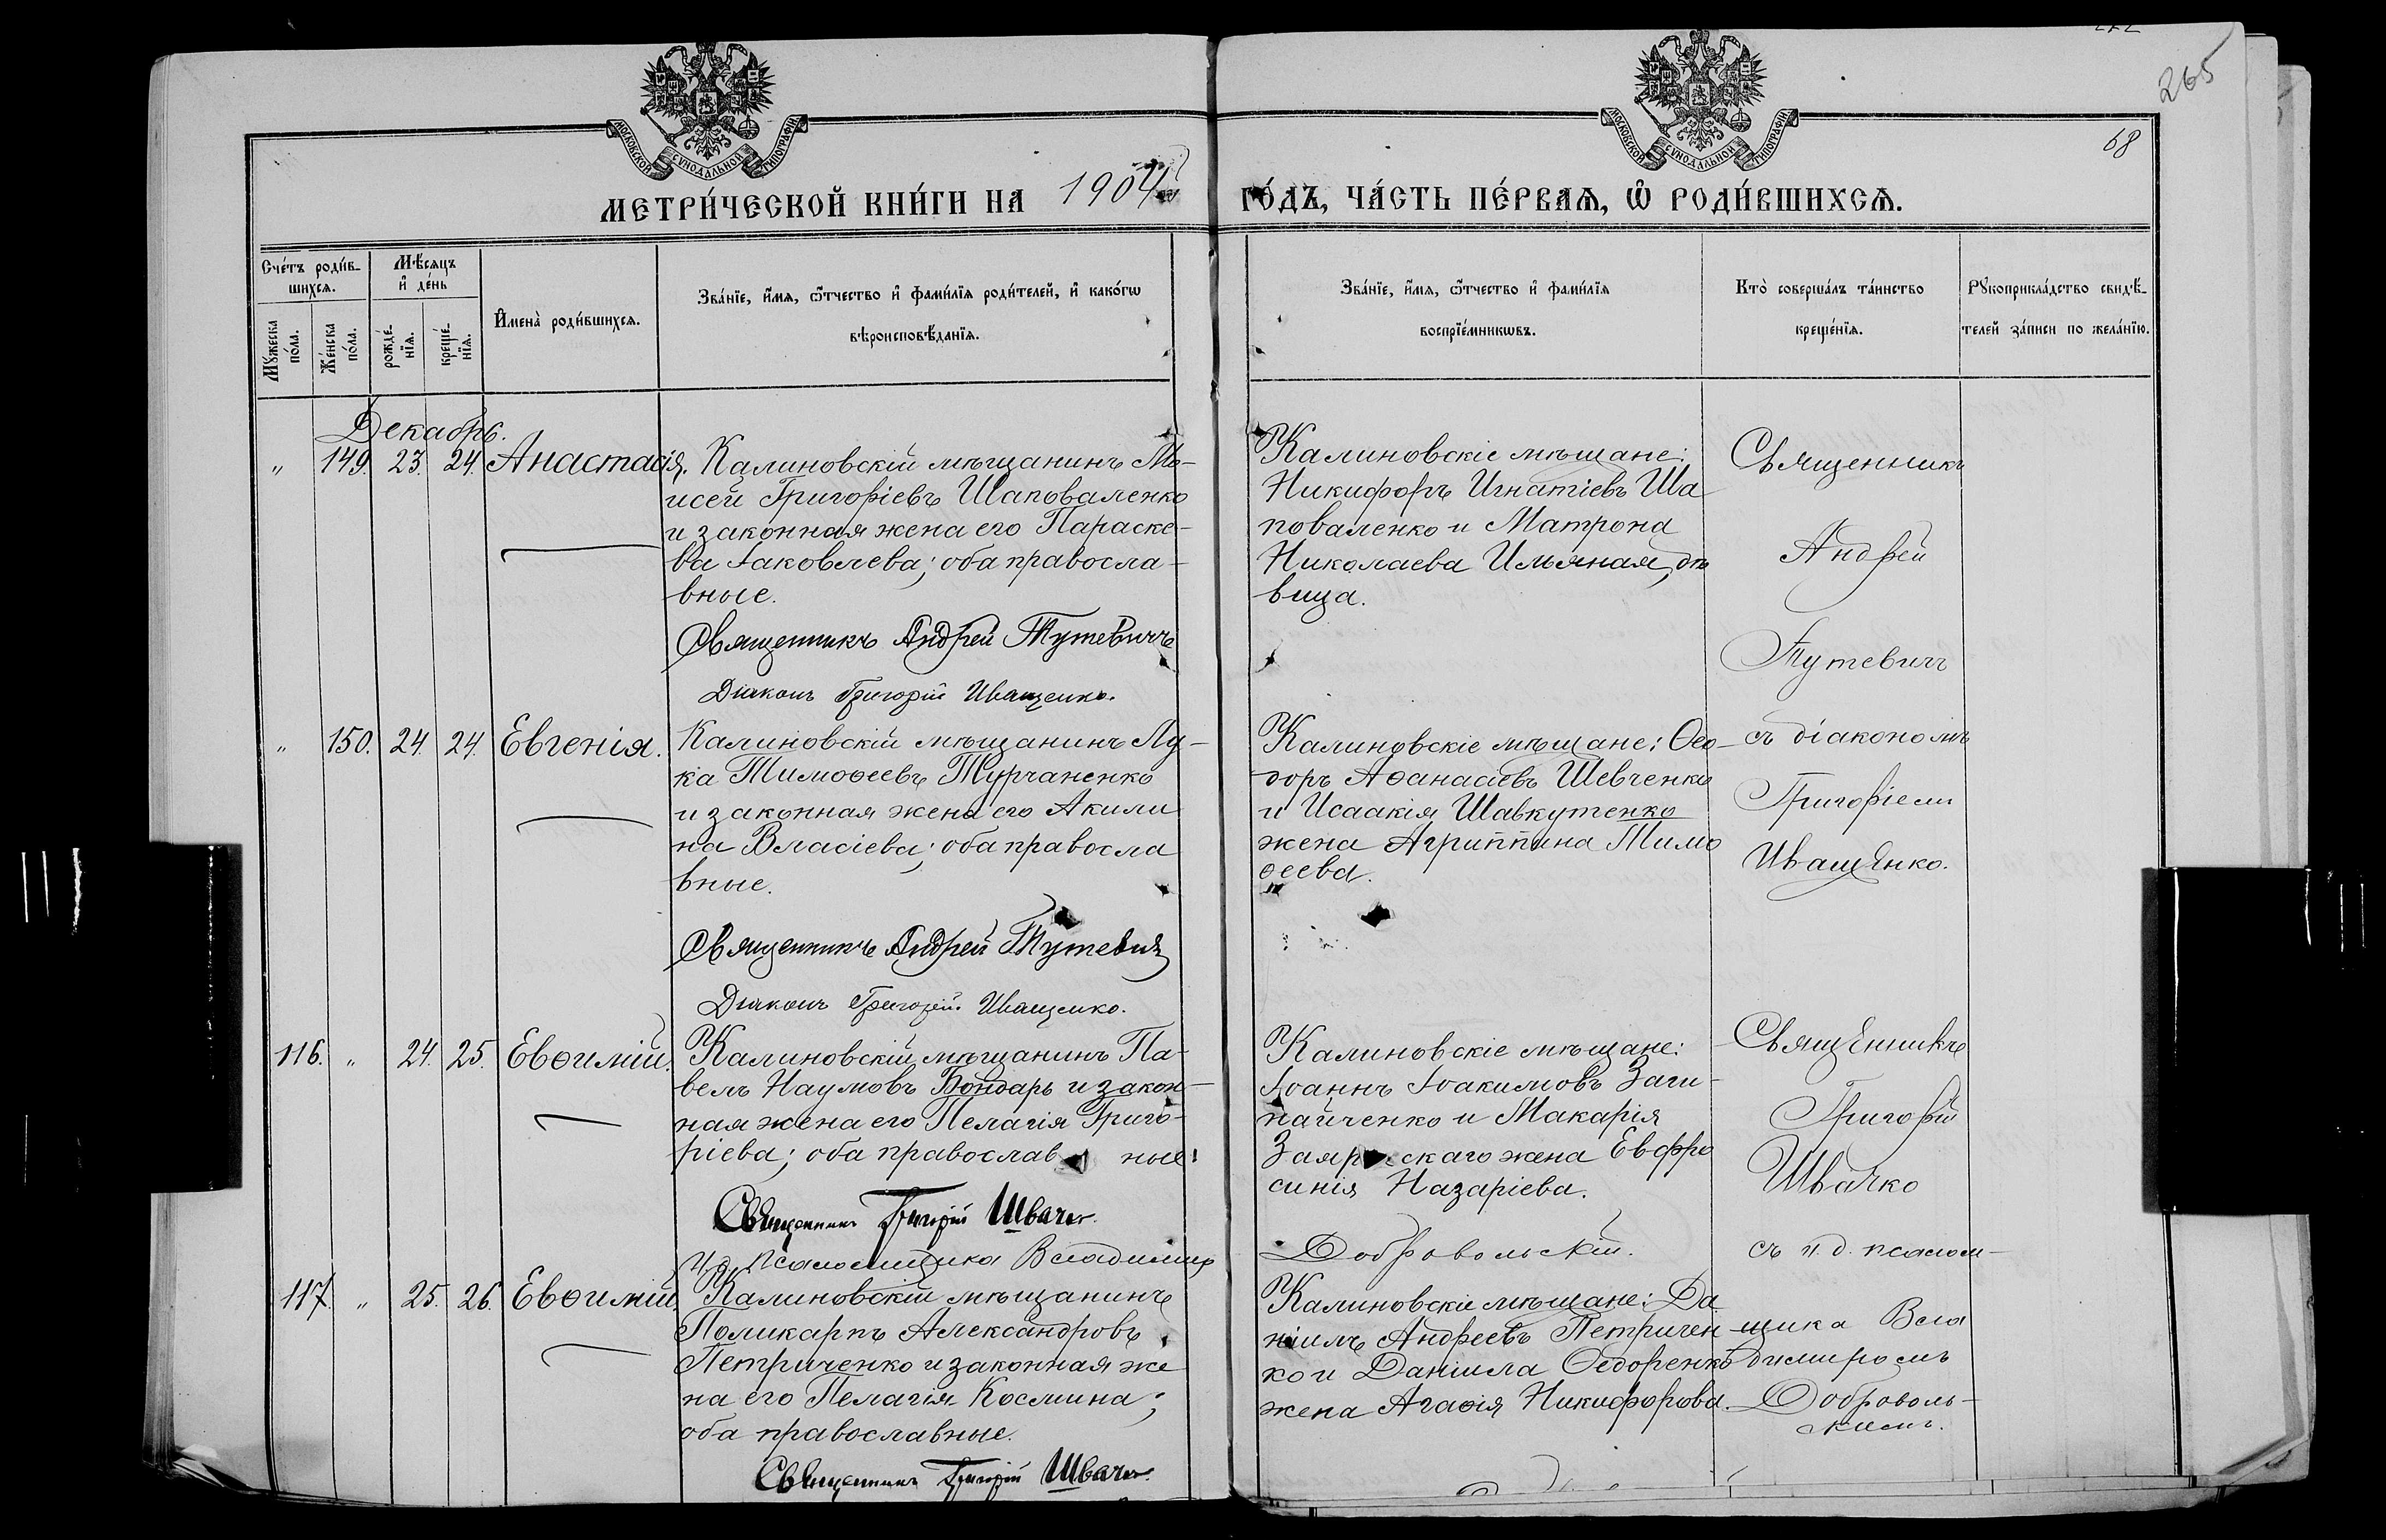 265
68
МОСКОВСКОЙ СѴНОДАЛЬНОЙ ТИПОГРАФІИ
МОСКОВСКОЙ СѴНОДАЛЬНОЙ ТИПОГРАФІИ
МЕТРИ́ЧЕСКОЙ КНИ́ГИ НА 1904 ГО́ДЪ, ЧА́СТЬ ПЕ́РВАѦ, Ѡ҆ РОДИ́ВШИХСѦ.
Сче́тъ роди́в-
шихсѧ.
Мꙋ́жеска по́ла.
Же́нска по́ла.
Мѣ́сѧцъ
и҆ де́нь
рожде́-
нїѧ.
креще́-
нїѧ.
И҆мена̀ роди́вшихсѧ.
Зва́нїе, и҆́мѧ, ѻ҆́тчество и҆ фами́лїѧ роди́телей, и҆ како́гѡ
вѣроисповѣ́данїѧ.
Зва́нїе, и҆́мѧ, ѻ҆́тчество и҆ фами́лїѧ
воспрїе́мникѡвъ.
Кто̀ соверша́лъ та́инство
креще́нїѧ.
Рꙋкоприкла́дство свидѣ́-
телей за́писи по жела́нїю.
Декабрь.
„ 149. 23. 24. Анастасія.
Калиновскій мѣщанинъ Мо-
исей Григоріевъ Шаповаленко
и законная жена его Параске-
ва Іаковлева; оба правосла-
вные.
Священникъ Андрей Тутевичъ
Діаконъ Григорій Иващенко.
Калиновскіе мѣщане:
Никифоръ Игнатіевъ Ша
поваленко и Матрона
Николаева Ильяная, дѣ
вица.
Священникъ
Андрей
Тутевичъ
съ діакономъ
Григоріемъ
Иващенко.
„ 150. 24. 24. Евгенія.
Калиновскій мѣщанинъ Лу-
ка Тимоѳеевъ Турчаненко
и законная жена его Акили
на Власіева; оба правосла
вные.
Священникъ Андрей Тутевичъ
Діаконъ Григорій Иващенко.
Калиновскіе мѣщане: Ѳео-
доръ Аѳанасіевъ Шевченко
и Исаакія Шавкутенко
жена Агриппина Тимо
ѳеева.
116. „ 24. 25. Евѳимій.
Калиновскій мѣщанинъ Па-
велъ Наумовъ Бондарь и закон-
ная жена его Пелагія Григо-
ріева; оба православ ные.
Священникъ Григорій Швачко.
И. д. псаломщика Владимиръ Добровольскій.
Калиновскіе мѣщане:
Іоаннъ Іоакимовъ Заги-
найченко и Макарія
скаго жена Евфро
синія Назаріева.
Священникъ
Григорій
Швачко
съ и. д. псалом-
щика Вла
димиромъ
Доброволь-
скимъ.
117. „ 25. 26. Евѳимій.
Калиновскій мѣщанинъ
Поликарпъ Александровъ
Петриченко и законная же
на его Пелагія Космина;
оба православные.
Священникъ Григорій Швачко.
Калиновскіе мѣщане: Да
ніилъ Андреевъ Петричен
ко и Даніила Ѳедоренко
жена Агаѳія Никифорова.